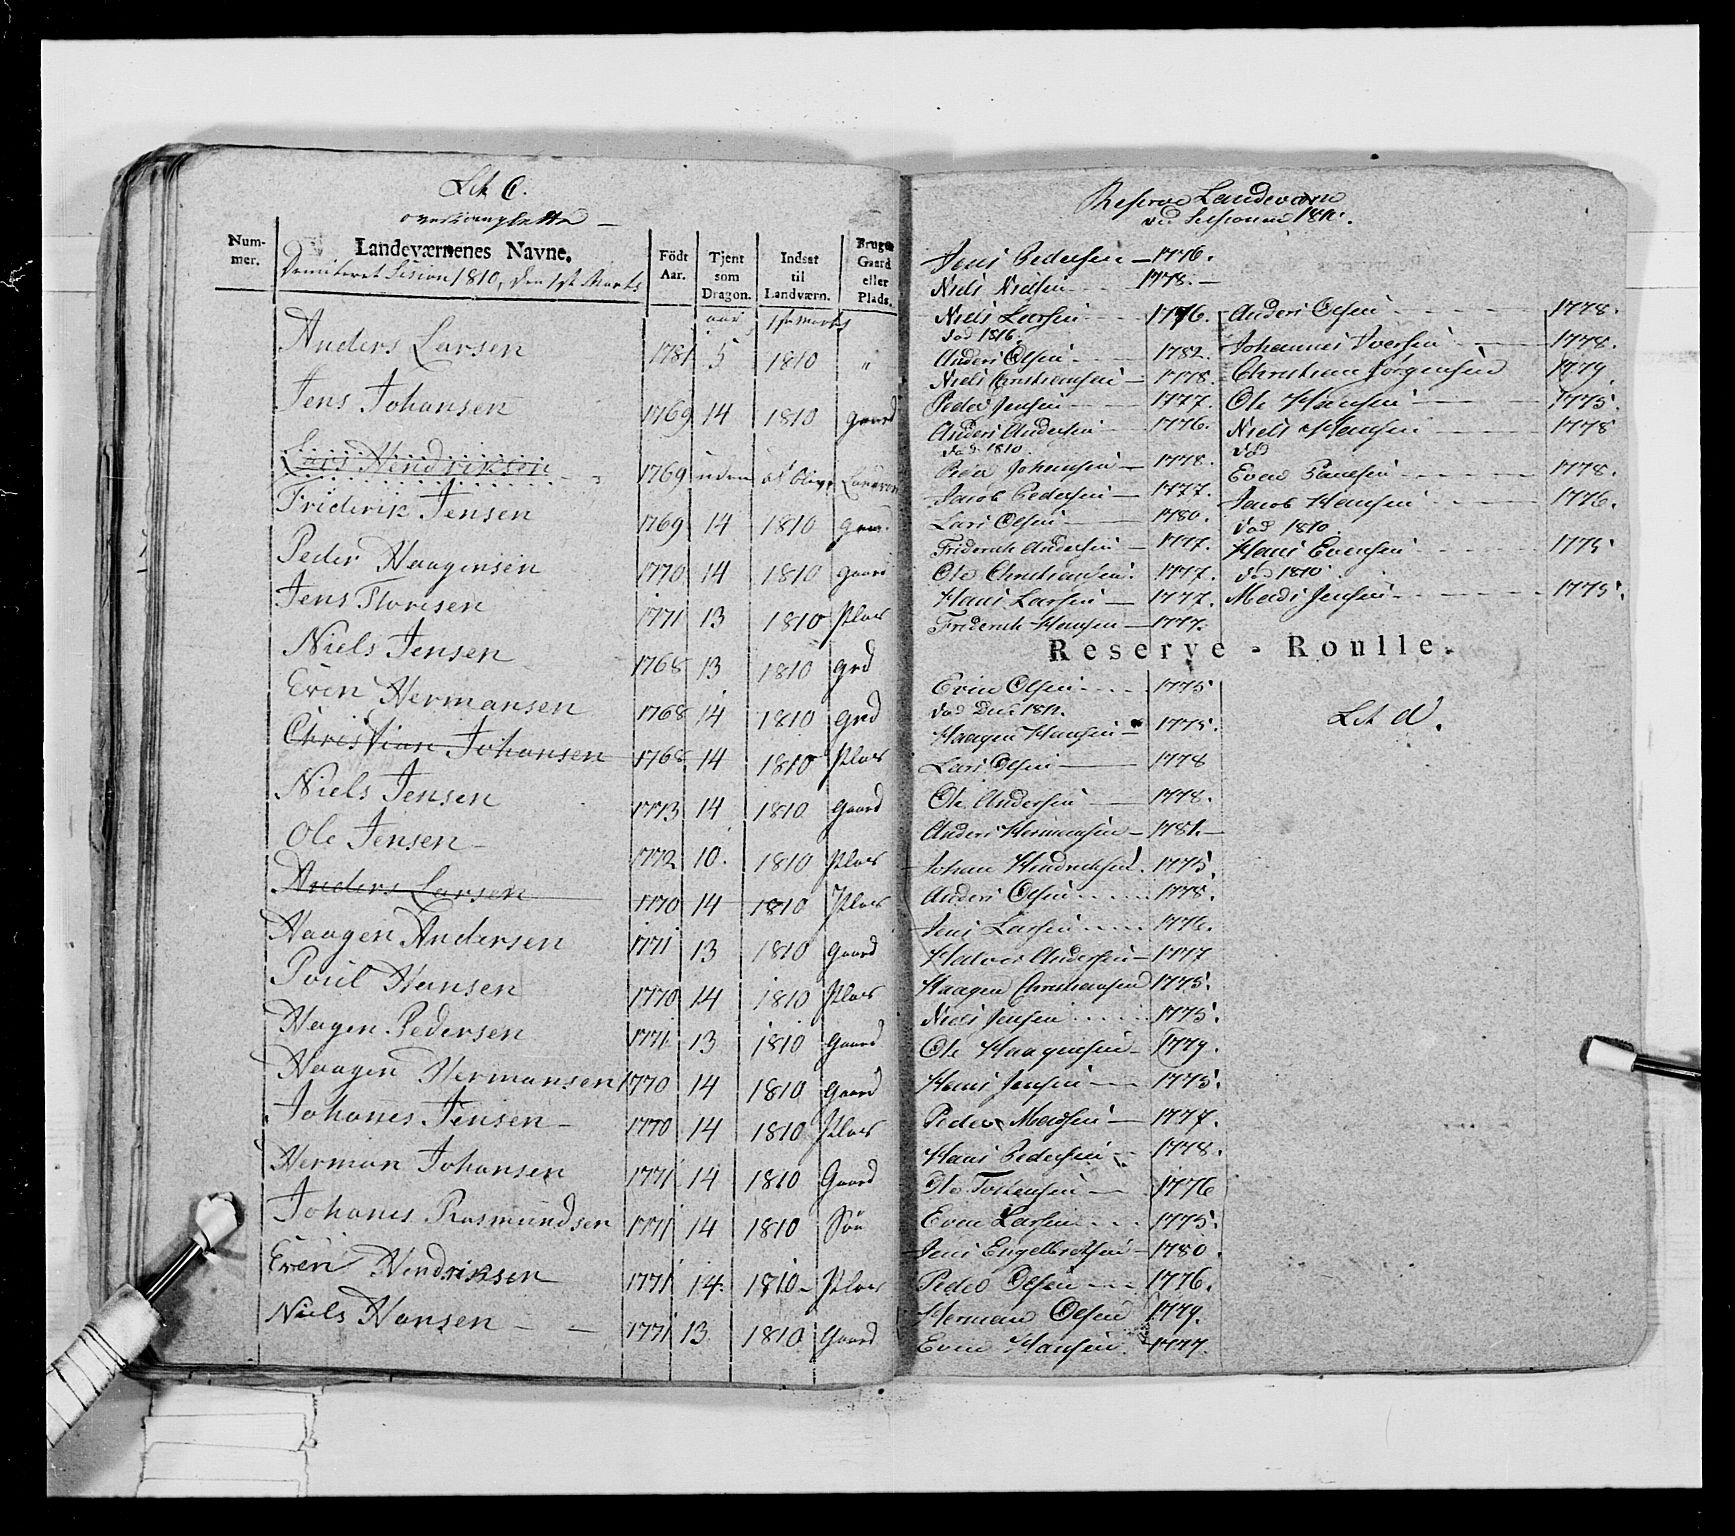 Lit C.
overcomplette —
Num-
mer.
Landeværnenes Navne.
Födt
Aar.
Tjent
som
Dragon.
Indsat
til
Landværn.
Bruger
Gaard
eller
Plads.
Demiteret Sesion 1810, den 1ste Marts
aar 1ste Marts
Anders Larsen 1781 5 1810 "
Jens Johansen 1769 14 1810 gaard
Lars Hendriksen 1769 uden
Friderik Jensen 1769 14 1810 gaar.
Peder Haagensen 1770 14 1810 gaard
Jens Thoresen 1771 13 1810 Plas
Niels Jensen 1768 13 1810 grd
Even Hermansen 1768 14 1810 grd
Christian Johansen 1768 14 1810 Plas
Niels Jensen 1773 14 1810 gaard
Ole Jensen 1772 10. 1810 Plas
Anders Larsen 1770 14 1810 Plas
Haagen Andersen 1771 13 1810 gaard
Poül Hansen 1770 14 1810 Plas
Hagen Pedersen 1771 13 1810 gaard
Haagen Hermansen 1770 14 1810 gaard
Johanes Jensen 1770 14 1810 Plas
Herman Johansen 1771 14 1810 Gaard
Johanes Rasmundsen 1771 14 1810 Söe
Even Hendriksen 1771 14. 1810 Plas
Niels Hansen 1771 13 1810 Gaard
Reserve Landeværn
ved Sessionen
Jens Pedersen 1776.
Niels Nielsen 1778.
Niels Larsen 1776.
død 1816.
Anders Olsen 1782.
Niels Christiansen 1778.
Peder Jensen 1777.
Anders Andersen 1776.
død 1810.
Peder Johansen 1778.
Jacob Pedersen 1777.
Lars Olsen 1780.
Friderich Andersen 1777.
Ole Christiansen. 1777.
Hans Larsen 1777.
Friderich Hansen 1777.
Anders Olsen 1778.
Johannes Iversen 1778.
Christian Jørgensen 1779.
Ole Hansen 1775.
Niels Hansen 1778
død
Even Paulsen 1778.
Jacob Hansen 1776.
død 1810.
Hans Evensen 1775
død 1810
Mads Jensen 1775.
Reserve-Roulle.
Lit D.
Even Olsen 1775
Haagen Hansen 1775.
Lars Olsen 1778
Ole Andersen 1778.
Anders Hermansen 1781.
Johan Hendrichsen. 1775.
Anders Olsen 1778.
Jens Larsen 1776.
Halvor Andersen 1777
Haagen Christiansen 1775.
Niels Jensen 1775.
Ole Haagensen 1779.
Hans Jensen 1775.
Peder Madsen 1777.
Hans Pedersen 1778.
Ole Tostensen 1776
Even Larsen 1775.
Jens Engelbretsen 1780.
Peder Olsen 1776.
Herman Olsen 1779.
Even Hansen. 1777.